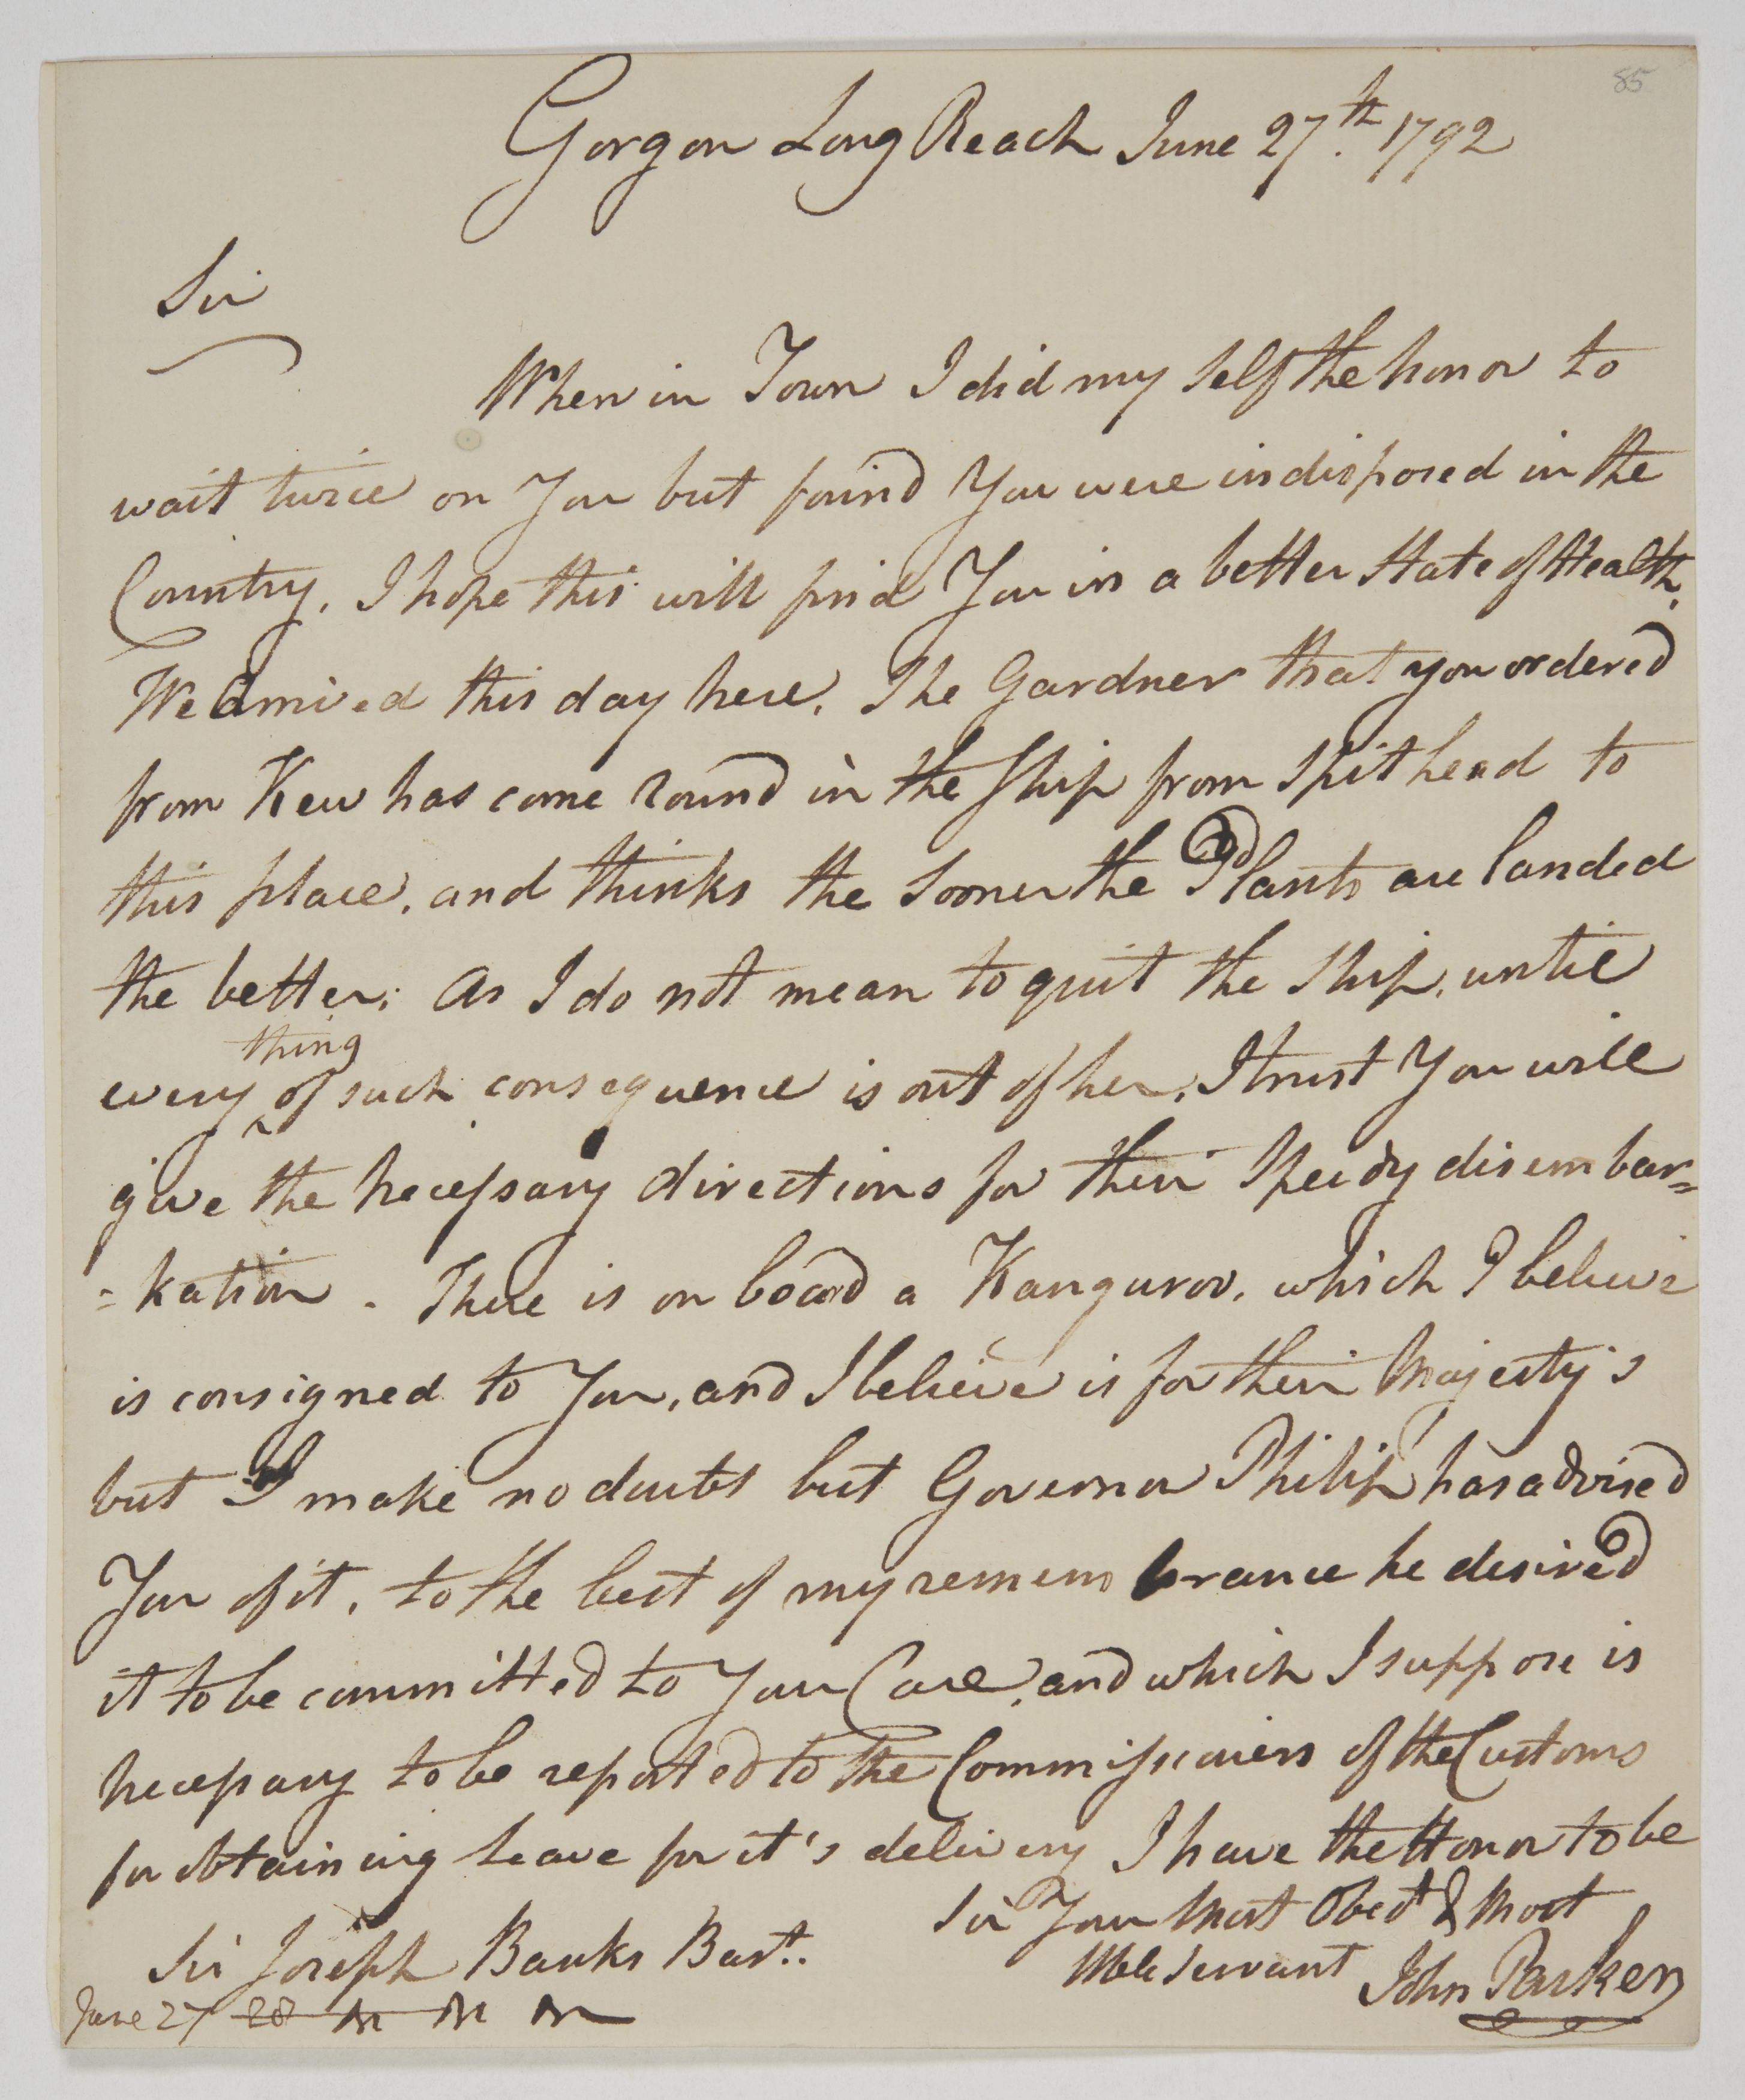 85
Gorgon Long Reach June 27.th 1792
Sir
When in Town I did my self the honor to
wait twice on You but found You were indisposed in the
Country. I hope this will find You in a better State of Health.
We arrived this day here. The Gardner that you ordered
from Kew has come round in the Ship from Spithead to
this place, and thinks the sooner the Plants are landed
the better; As I do not mean to quit the Ship, until
thing
every ^ of such consequence is out of her, I trust You will
give the necessary directions for their Speedy disembar=
=kation. There is on board a Kanguroo, which I believe
is consigned to You, and I believe is for their Majesty's
but I make no doubts but Governor Philip has advised
You of it, to the best of my remembrance he desired
it to be committed to Your Care, and which I suppose is
necessary to be reported to the Commissioners of the Customs
for obtaining leave for it's delivery I have the Honor to be
Sir Your most Obedt & most
Hble Servant John Parker
Sir Joseph Banks Bart.
June 27 28